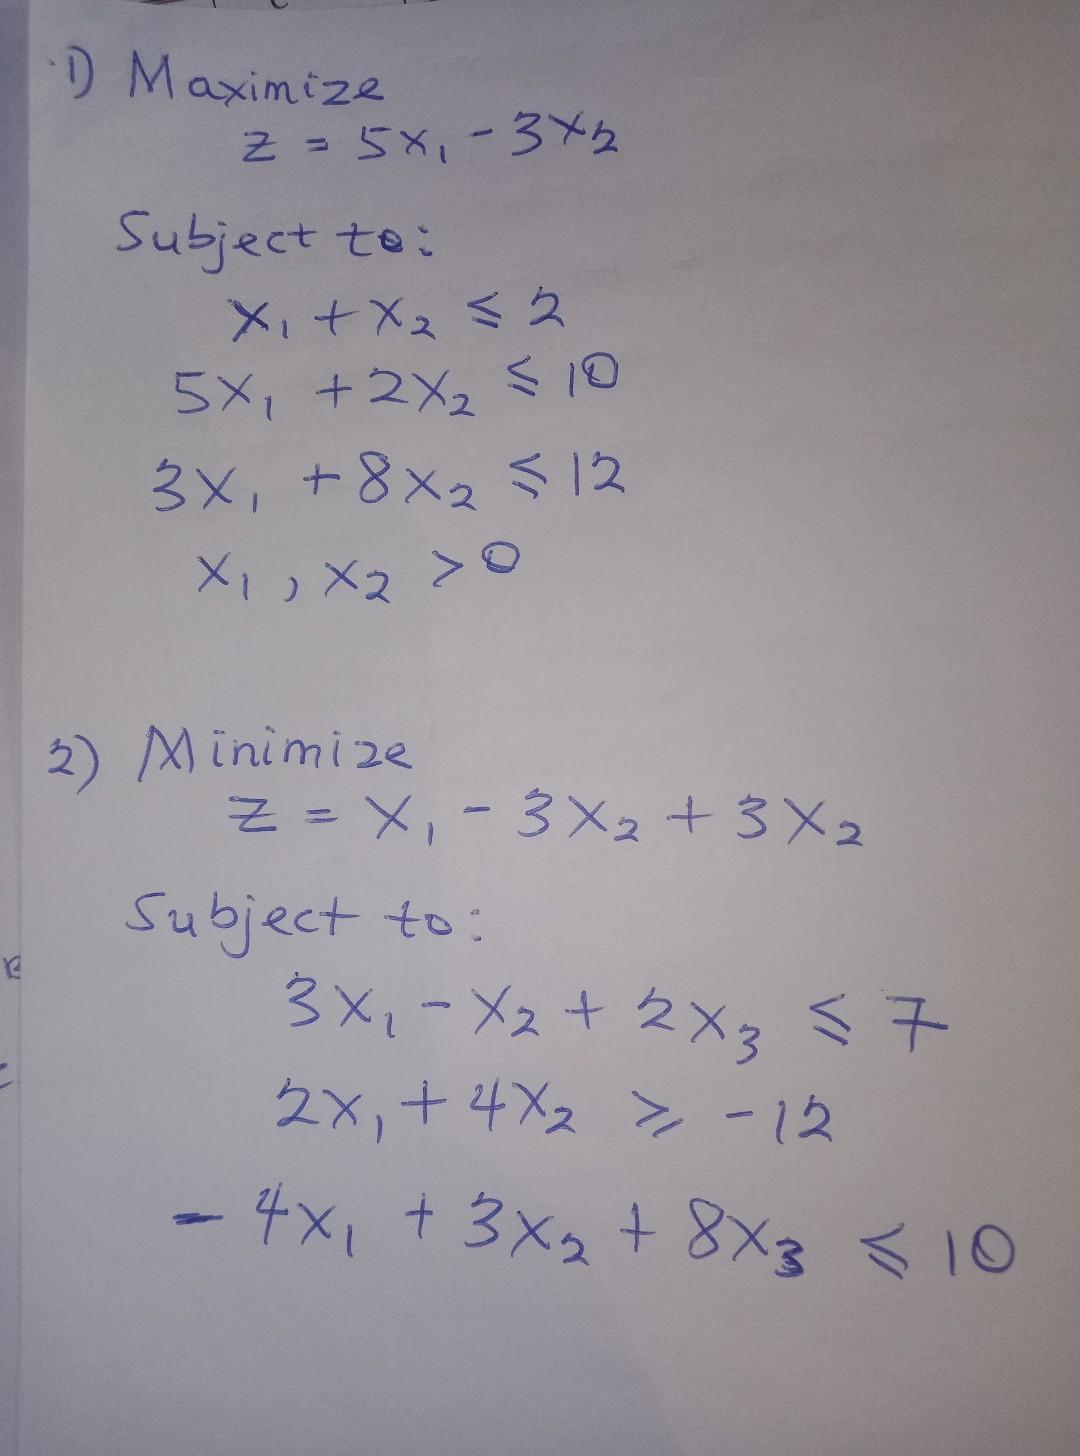 1) Maximize
z = 5x₁ - 3x₂
Subject to:
x₁ + x₂ ≤ 2
5x₁ + 2x₂ ≤ 10
3x₁ + 8x₂ ≤ 12
x₁, x₂ > 0
2) Minimize
z = x₁ - 3x₂ + 3x₂
Subject to:
3x₁ - x₂ + 2x₃ ≤ 7
2x₁ + 4x₂ ≥ -12
- 4x₁ + 3x₂ + 8x₃ ≤ 10